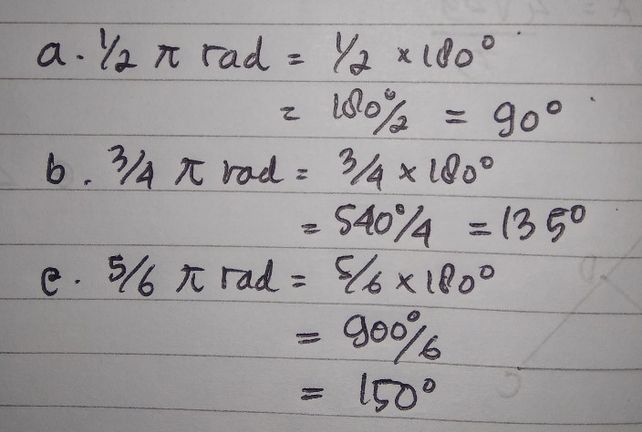 a. 1/2 π rad = 1/2 × 180°
= 180°/2 = 90°
b. 3/4 π rad = 3/4 × 180°
= 540°/4 = 135°
c. 5/6 π rad = 5/6 × 180°
= 900°/6
= 150°